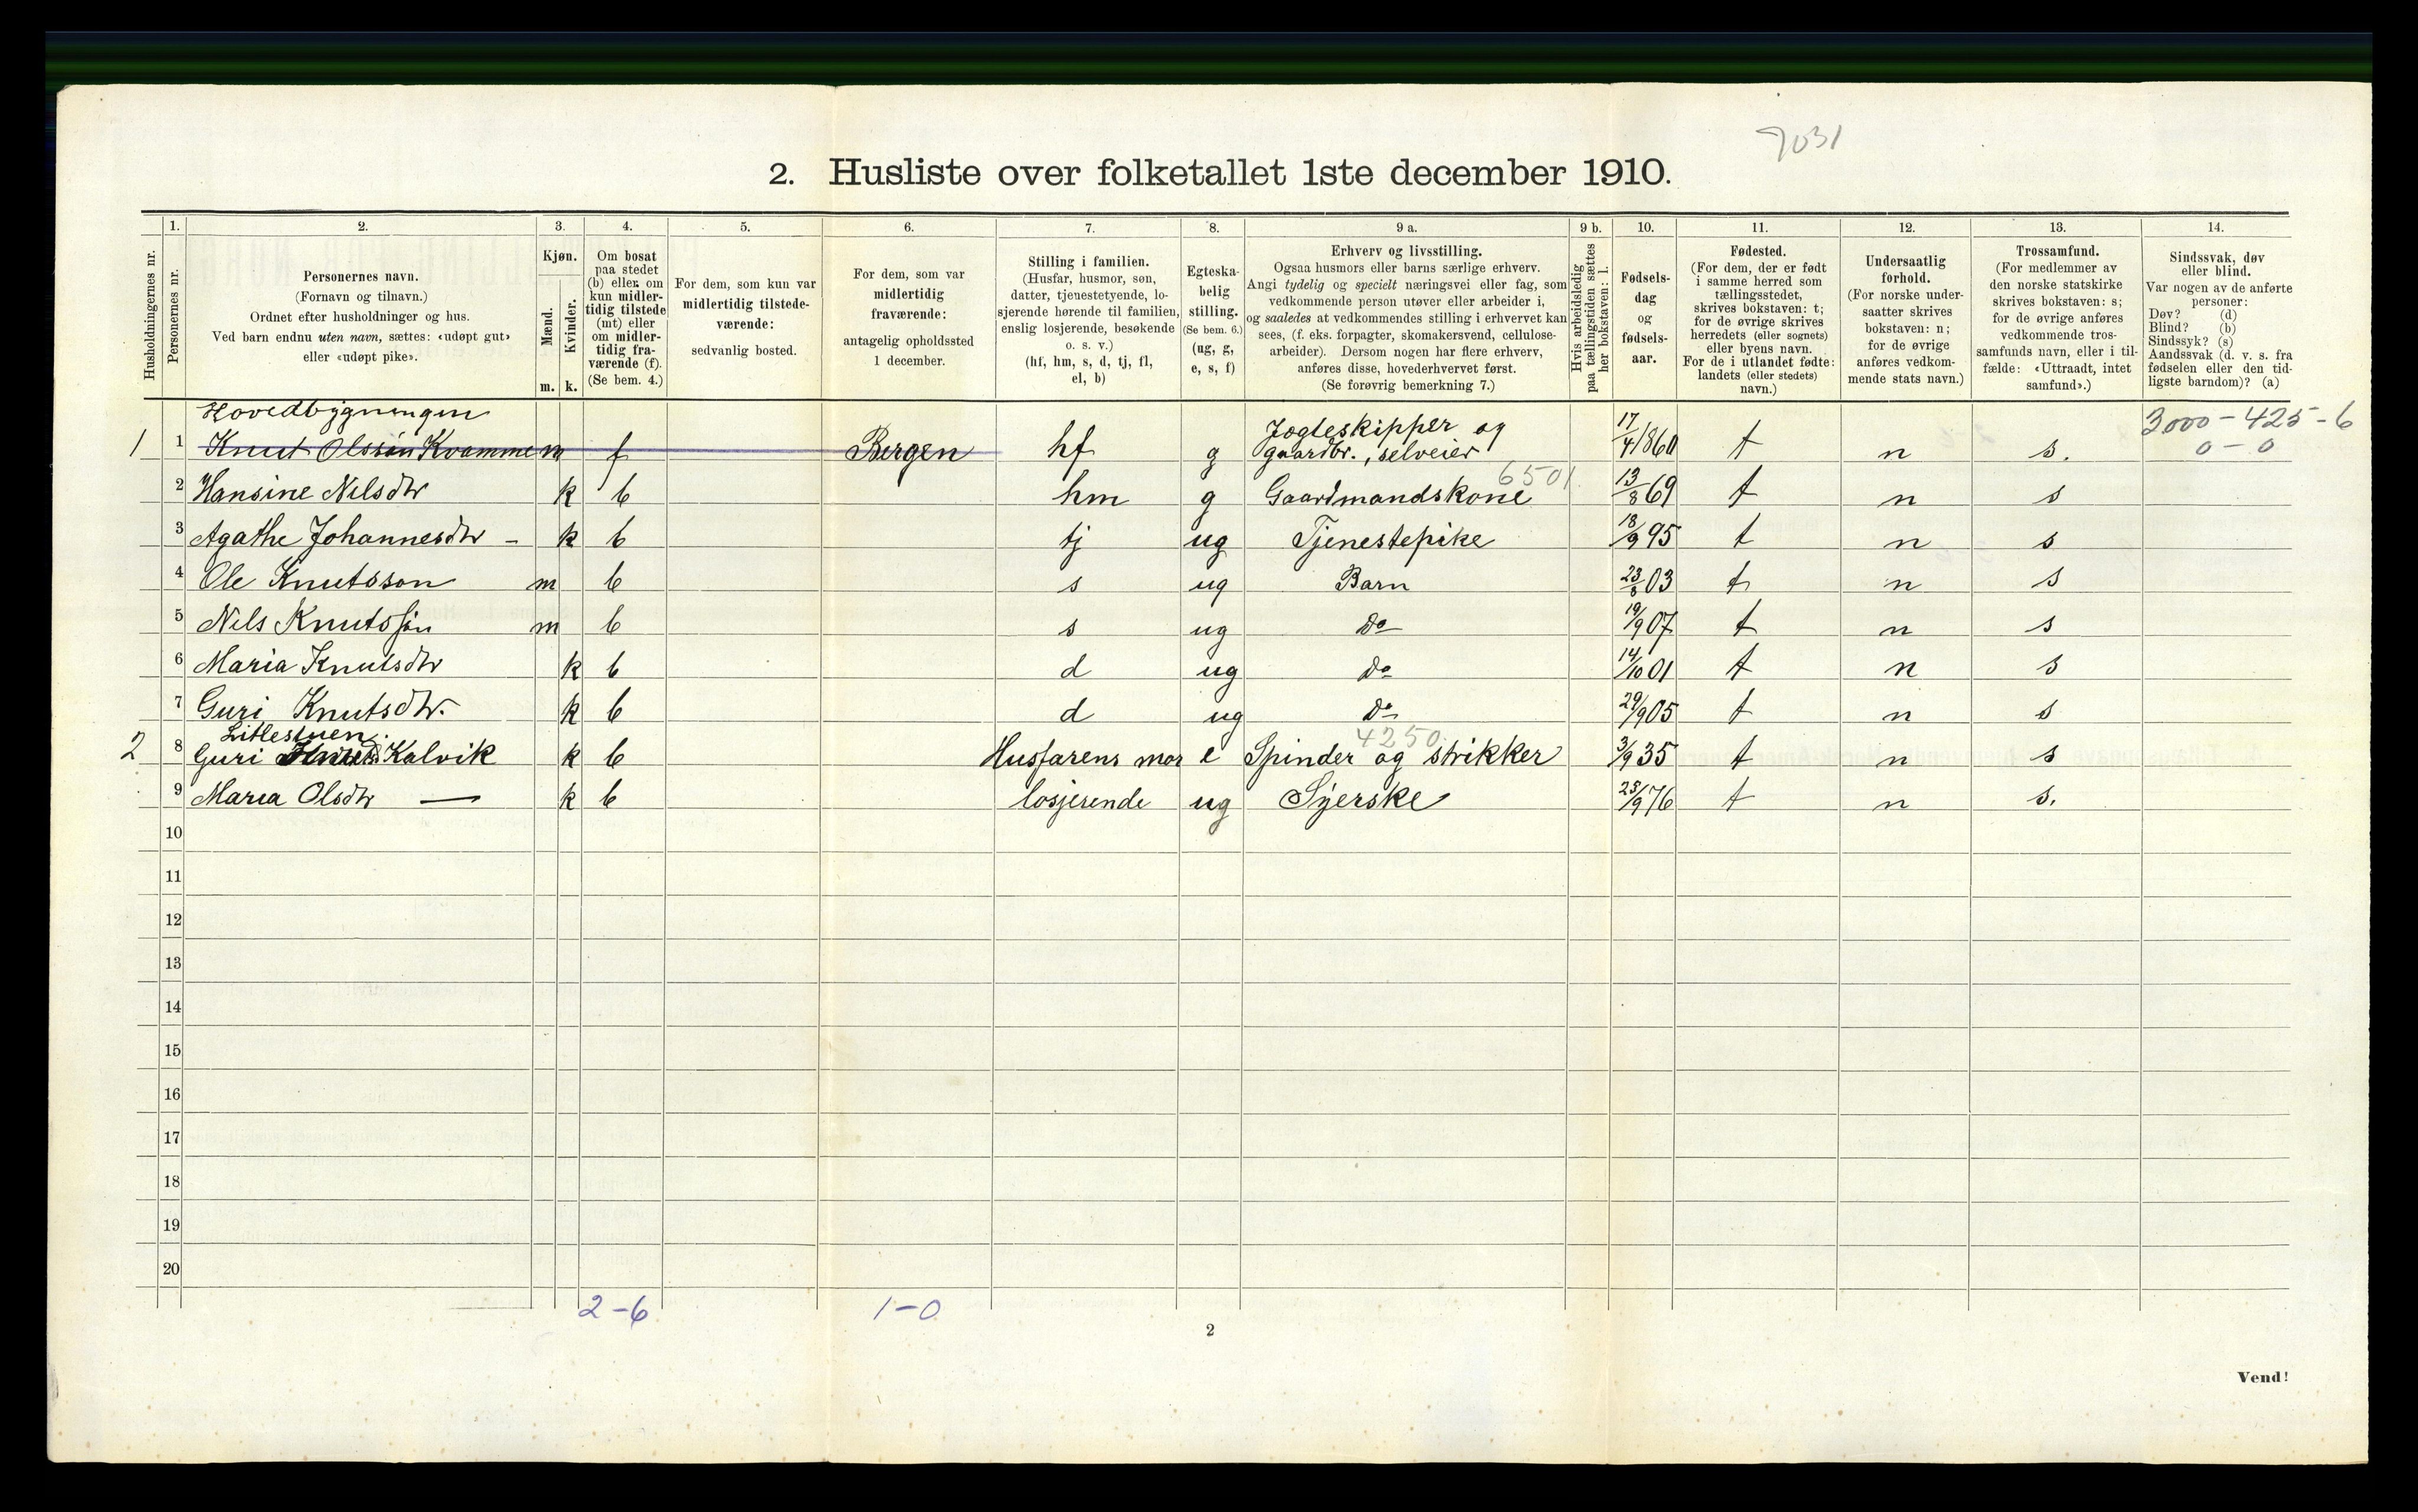 7031
2. Husliste over folketallet 1ste december 1910.
Husholdningernes nr.
1.
Personernes nr.
2.
Personernes navn.
(Fornavn og tilnavn.)
Ordnet efter husholdninger og hus.
Ved barn endnu uten navn, sættes: «udøpt gut»
eller «udøpt pike».
3.
Kjøn.
Mænd.
Kvinder.
m. k.
4.
Om bosat
paa stedet
(b) eller om
kun midler-
tidig tilstede
(mt) eller
om midler-
tidig fra-
værende (f).
(Se bem. 4.)
5.
For dem, som kun var
midlertidig tilstede-
værende:
sedvanlig bosted.
6.
For dem, som var
midlertidig
fraværende:
antagelig opholdssted
1 december.
7.
Stilling i familien.
(Husfar, husmor, søn,
datter, tjenestetyende, lo-
sjerende hørende til familien,
enslig losjerende, besøkende
o. s. v.)
(hf, hm, s, d, tj, fl,
el, b)
8.
Egteska-
belig
stilling.
(Se bem. 6.)
(ug, g,
e, s, f)
9 a.
Erhverv og livsstilling.
Ogsaa husmors eller barns særlige erhverv.
Angi tydelig og specielt næringsvei eller fag, som
vedkommende person utøver eller arbeider i,
og saaledes at vedkommendes stilling i erhvervet kan
sees, (f. eks. forpagter, skomakersvend, cellulose-
arbeider). Dersom nogen har flere erhverv,
anføres disse, hovederhvervet først.
(Se forøvrig bemerkning 7.)
9 b.
Hvis arbeidsledig
paa tællingstiden sættes
her bokstaven: l.
10.
Fødsels-
dag
og
fødsels-
aar.
11.
Fødested.
(For dem, der er født
i samme herred som
tællingsstedet,
skrives bokstaven: t;
for de øvrige skrives
herredets (eller sognets)
eller byens navn.
For de i utlandet fødte:
landets (eller stedets)
navn.)
12.
Undersaatlig
forhold.
(For norske under-
saatter skrives
bokstaven: n;
for de øvrige
anføres vedkom-
mende stats navn.)
13.
Trossamfund.
(For medlemmer av
den norske statskirke
skrives bokstaven: s;
for de øvrige anføres
vedkommende tros-
samfunds navn, eller i til-
fælde: «Uttraadt, intet
samfund».)
14.
Sindssvak, døv
eller blind.
Var nogen av de anførte
personer:
Døv? (d)
Blind? (b)
Sindssyk? (s)
Aandssvak (d. v. s. fra
fødselen eller den tid-
ligste barndom)? (a)
Hovedbygningen
1 1 Knut Olsson Kvamme m f Bergen hf g Jogteskipper og gaardbr., selveier 17/4 1860 t n s. 3000-425-6
0-0
2 Hansine Nilsdtr k b hm g Gaardmandskone 6501. 13/8 69 t n s
3 Agathe Johannesdtr - k b tj ug Tjenestepike 18/9 95 t n s
4 Ole Knutsson m b s ug Barn 23/8 03 t n s
5 Nils Knutssøn m b s ug Do 19/9 07 t n s
6 Maria Knutsdtr k b d ug Do 14/10 01 t n s
7 Guri Knutsdtr. k b d ug Do 29/9 05 t n s
Litlestuen.
4250.
2 8 Guri Kalvik k b Husfarens mor e Spinder og strikker 3/9 35 t n s
9 Maria Olsdtr — k b losjerende ug Syerske 25/9 76 t n s.
10
11
12
13
14
15
16
17
18
19
20
2-6 1-0
2
Vend!